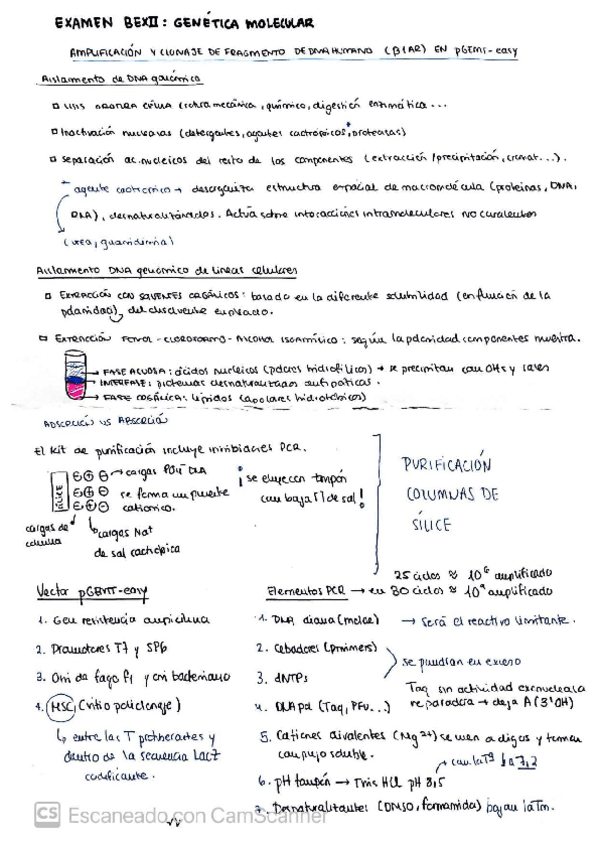 EXAMEN BEXII: GENÉTICA MOLECULAR
AMPLIFICACIÓN Y CLONAJE DE FRAGMENTO DE DNA HUMANO (β1AR) EN pGEMT-easy
Aislamento de DNA genómico
Lisis ruptura célula (rotura mecánica, químico, digestión enzimática...
Inactivación nucleasas (detergentes, agentes caotrópicos, proteasas)
Separación ac. nucleicos del resto de los componentes (extracción/precipitación, cromat...).
agente caotrópico → desorganiza estructura espacial de macromolécula (proteínas, DNA,
RNA), desnaturalizándolos. Actúa sobre interacciones intramoleculares no covalentes
(urea, guanidinia)
Aislamiento DNA genómico de líneas celulares
Extracción con solventes orgánicos: basado en la diferente solubilidad (en función de la
polaridad) del disolvente empleado.
Extracción fenol-cloroformo-alcohol isoamílico: según la polaridad componentes muestra.
→ FASE ACUOSA: ácidos nucleicos (polares hidrofílicos) → se precipitan con OHs y sales
→ INTERFASE: proteínas desnaturalizadas anfipáticas.
→ FASE ORGÁNICA: lípidos (apolares hidrofóbicos)
ADSORCIÓN VS ABSORCIÓN
El kit de purificación incluye inhibidores PCR.
SÍLICE
→ cargas DNA
se forma un puente
catiónico.
¡se eluye con tampón
con baja [] de sal!
cargas de
columna
cargas Na+
de sal caotrópica
PURIFICACIÓN
COLUMNAS DE
SÍLICE
25 ciclos ≈ 10⁶ amplificado
Vector pGEMT-easy
Elementos PCR → en 30 ciclos ≈ 10⁹ amplificado
1. Gen resistencia ampicilina
2. Promotores T7 y SP6
3. Ori de fago f1 y ori bacteriano
4. MSC (sitio policlonaje)
↳ entre las T protuberantes y
dentro de la secuencia LacZ
codificante.
1. DNA diana (molde) → Será el reactivo limitante.
2. Cebadores (primers)
3. dNTPs
se pondrían en exceso
4. DNA pol (Taq, Pfu...)
Taq sin actividad exonucleasa
reparadora → deja A (3'OH)
5. Cationes divalentes (Mg²⁺) se unen a oligos y forman
complejo soluble.
→ con la Tª ↓ a 7,2
6. pH tampón → Tris HCl pH 8,5
7. Desnaturalizantes (DMSO, formamida) bajan la Tm.
CS Escaneado con CamScanner